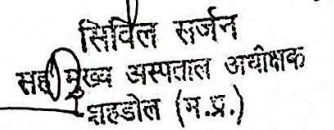 सिविल सर्जन
सह मुख्य अस्पताल अधीक्षक
शहडोल (म.प्र.)